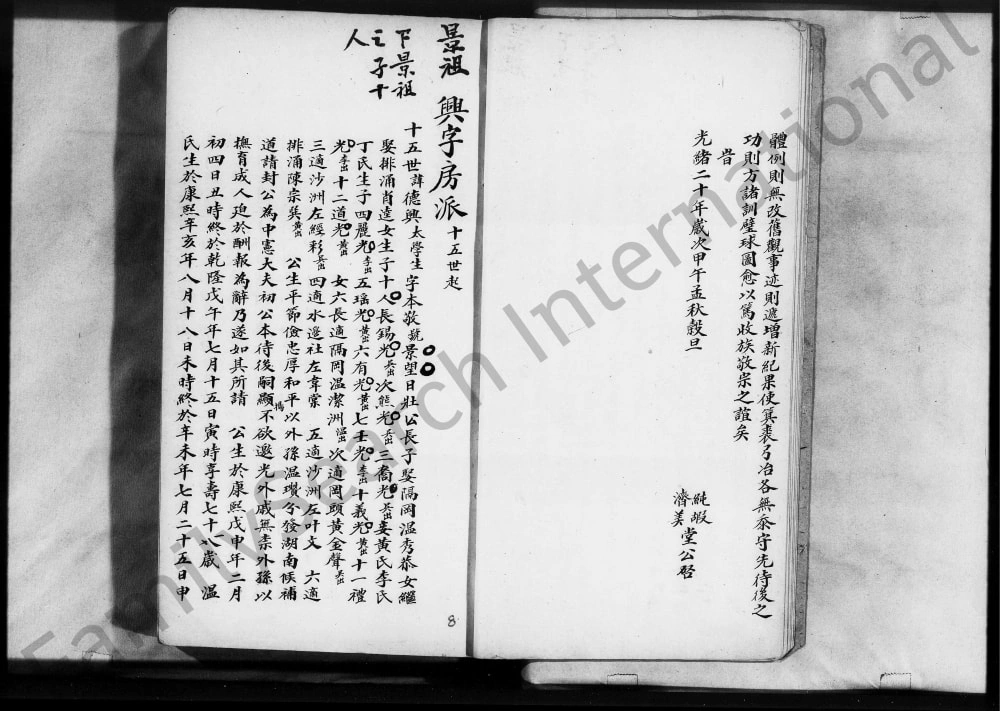 體例則無改舊觀事迹則遞增新紀果使箕裘弓冶各無忝守先待後之
功則方諸訓璧球圖愈以篤收族敬宗之誼矣
旹
光緒二十年歲次甲午孟秋穀旦
純嘏
濟美
堂公啓
景祖 興字房派 十五世起
下景祖
之子十
人
十五世諱德興太學生字本敬號景望日壯公長子娶隔岡溫秀恭女繼
娶排涌肖逵女生子十人長錫光吳出次熊光吳出三喬光吳出妾黃氏李氏
丁氏生子四麗光李出五瑤光黃出六有光黃出七壬光李出十義光黃出十一禮
光李出十二道光黃出 女六長適隔岡溫潔洲溫出次適岡頭黃金聲吳出
三適沙洲左經彩吳出四適水邊社左韋棠 五適沙洲左叶文 六適
排涌陳宗巽黃出 公生平節儉忠厚和平以外孫溫瓚分發湖南候補
道請封公為中憲大夫初公本待後嗣顯揚不欲邀光外戚無柰外孫以
撫育成人迫於酬報為辭乃遂如其所請 公生於康熙戊申年二月
初四日丑時終於乾隆戊午年七月十五日寅時享壽七十八歲 溫
氏生於康熙辛亥年八月十八日未時終於辛未年七月二十五日申
8
FamilySearch International